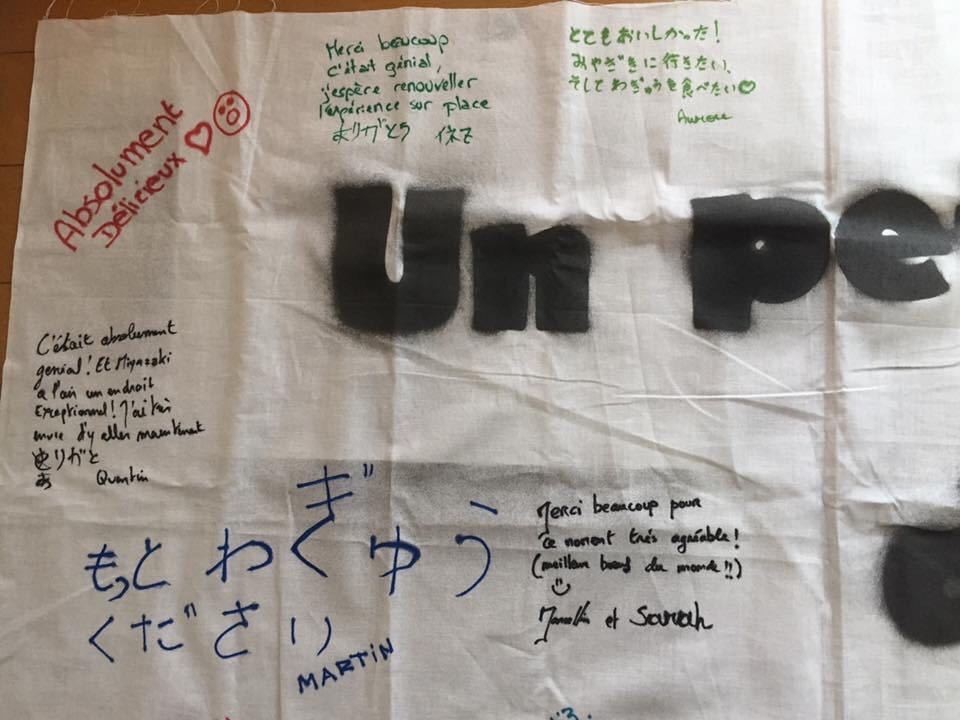 Merci beaucoup
c'était génial,
j'espère renouveller
l'expérience sur place
ありがとう イネス
とてもおいしかった!
みやざきに行きたい、
そしてわぎゅうを食べたい♡
Aurore
Absolument
Délicieux ♡
Un pe
C'était absolument
genial! Et Miyazaki
a l'air un endroit
Exceptionnel! J'ai très
envie d'y aller maintenant
ありがと
Quentin
ぎ
もっと わぐゅう
くださり
MARTIN
Merci beaucoup pour
ce moment très agréable!
(meilleur bœuf du monde!!)
et Sarah